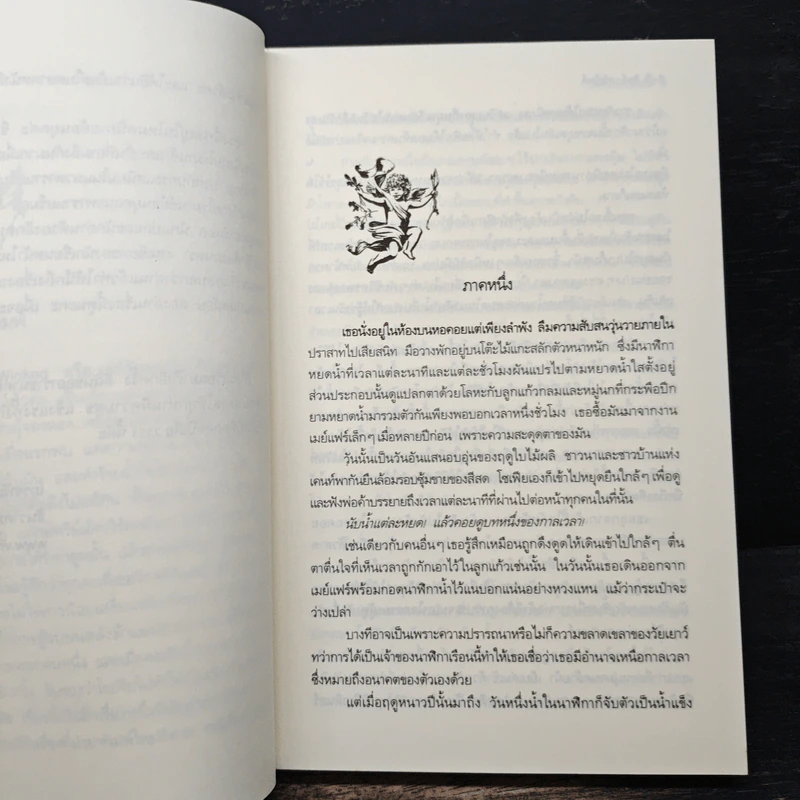 ภาคหนึ่ง
เธอนั่งอยู่ในห้องบนหอคอยแต่เพียงลำพัง ลืมความสับสนวุ่นวายภายใน
ปราสาทไปเสียสนิท มือวางพักอยู่บนโต๊ะไม้แกะสลักตัวหนาหนัก ซึ่งมีนาฬิกา
หยดน้ำที่เวลาแต่ละนาทีและแต่ละชั่วโมงผันแปรไปตามหยดน้ำใสตั้งอยู่
ส่วนประกอบนั้นดูแปลกตาด้วยโลหะกับลูกแก้วกลมและหมู่นกที่กระพือปีก
ยามหยาดน้ำมารวมตัวกันเพียงพอบอกเวลาหนึ่งชั่วโมง เธอซื้อมันมาจากงาน
เมย์แฟร์เล็กๆ เมื่อหลายปีก่อน เพราะความสะดุดตาของมัน
วันนั้นเป็นวันอันแสนอบอุ่นของฤดูใบไม้ผลิ ชาวนาและชาวบ้านแห่ง
เคนท์พากันยืนล้อมรอบซุ้มขายของสีสด โซเฟียเองก็เข้าไปหยุดยืนใกล้ๆ เพื่อดู
และฟังพ่อค้าบรรยายถึงเวลาแต่ละนาทีที่ผ่านไปต่อหน้าทุกคนในที่นั้น
นับน้ำแต่ละหยด! แล้วคอยดูบทหนึ่งของกาลเวลา!
เช่นเดียวกับคนอื่นๆ เธอรู้สึกเหมือนถูกดึงดูดให้เดินเข้าไปใกล้ๆ ตื่น
ตาตื่นใจที่เห็นเวลาถูกกักเอาไว้ในลูกแก้วเช่นนั้น ในวันนั้นเธอเดินออกจาก
เมย์แฟร์พร้อมกอดนาฬิกาน้ำไว้แนบอกแน่นอย่างหวงแหน แม้ว่ากระเป๋าจะ
ว่างเปล่า
บางทีอาจเป็นเพราะความปรารถนาหรือไม่ก็ความขลาดเขลาของวัยเยาว์
ทว่าการได้เป็นเจ้าของนาฬิกาเรือนนี้ทำให้เธอเชื่อว่าเธอมีอำนาจเหนือกาลเวลา
ซึ่งหมายถึงอนาคตของตัวเองด้วย
แต่เมื่อฤดูหนาวปีนั้นมาถึง วันหนึ่งน้ำในนาฬิกาก็จับตัวเป็นน้ำแข็ง